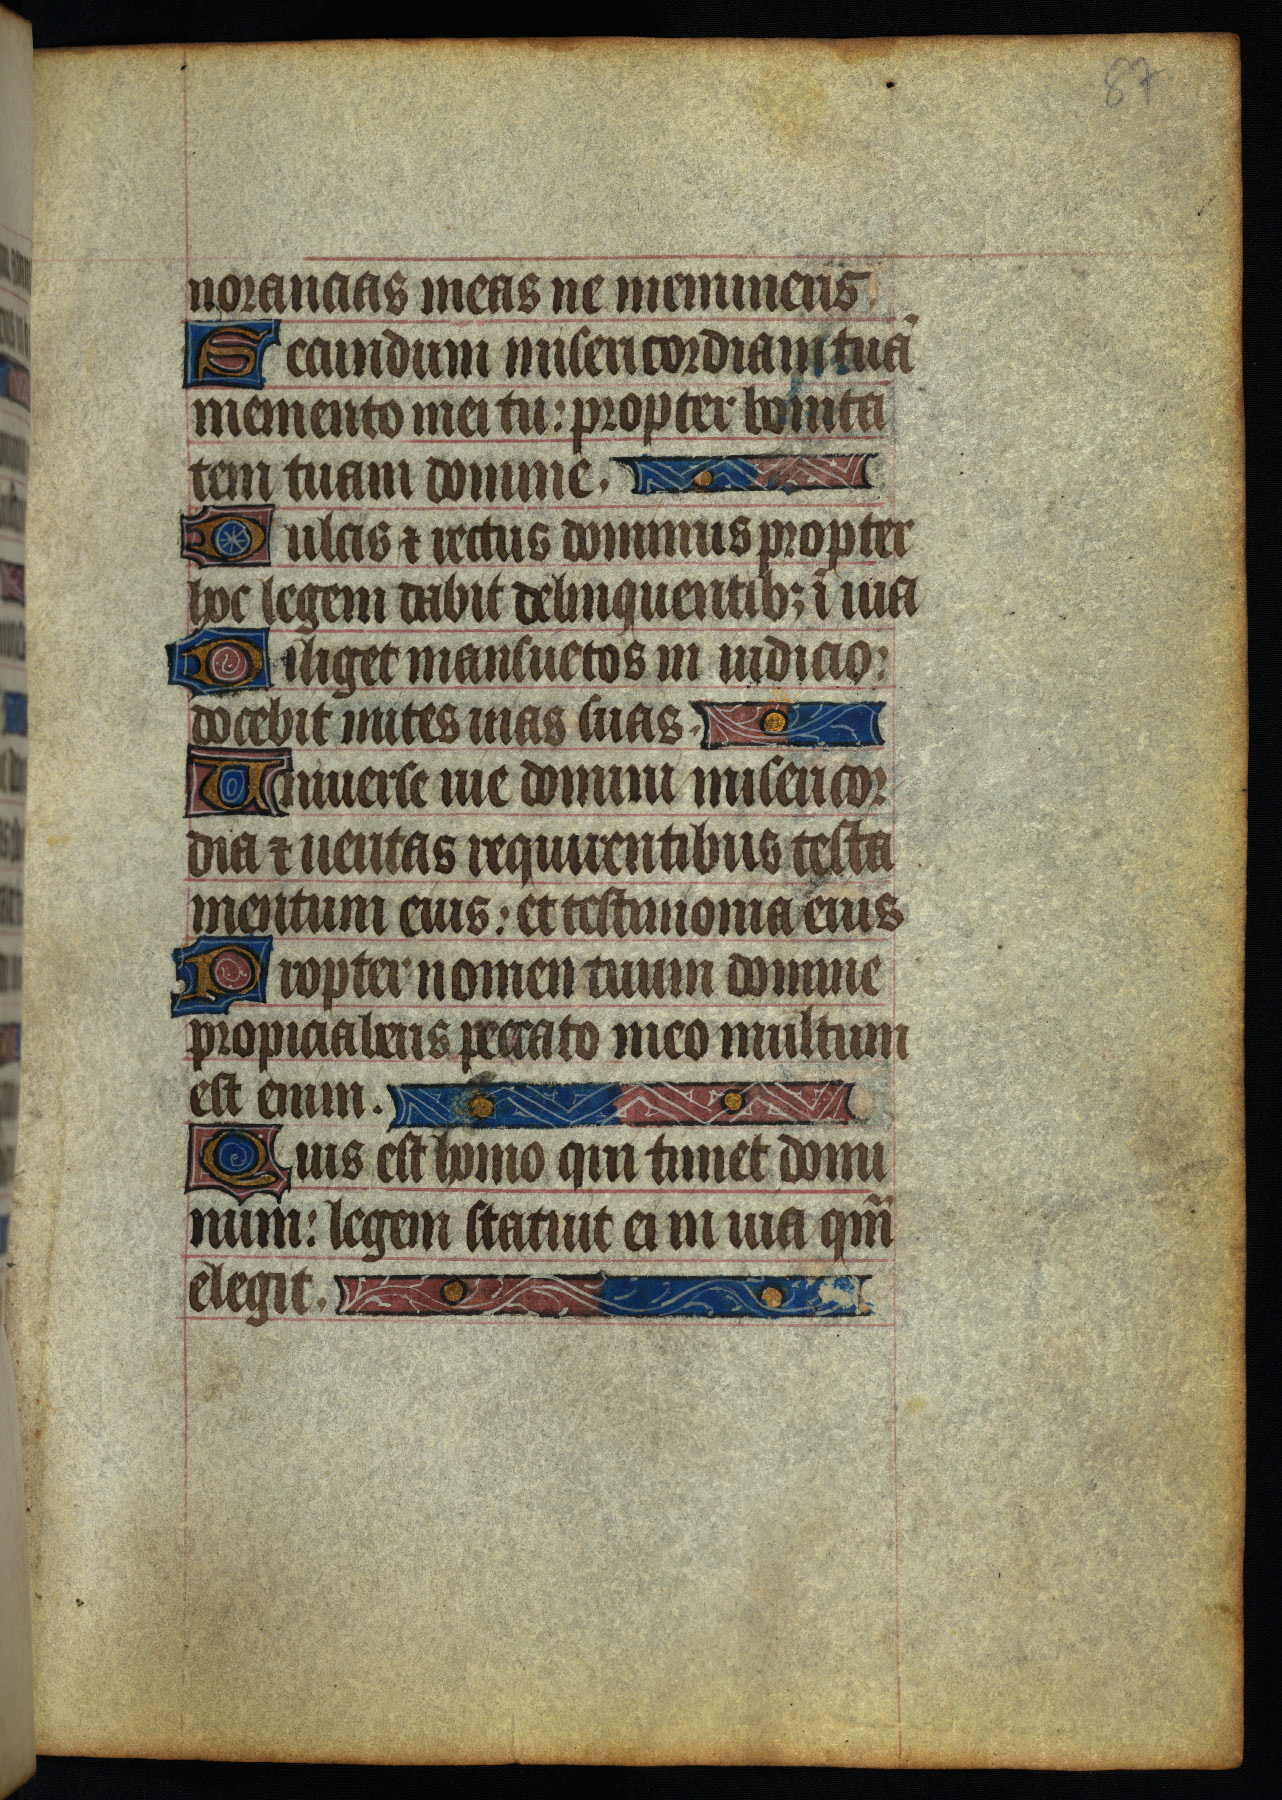 87
norancias meas ne memineris.
Secundum misericordiam tuā
memento mei tu: propter bonita
tem tuam domine.
Dulcis ⁊ rectus dominus propter
hoc legem dabit delinquentibꝫ ī uia
Diliget mansuetos in iudicio:
docebit mites uias suas.
Uniuerse uie domini misericor
dia ⁊ ueritas requirentibus testa
mentum eius: et testimonia eius
Propter nomen tuum domine
propiciaberis peccato meo multum
est enim.
Quis est homo qui timet domi
num: legem statuit ei in uia qm̄
elegit.